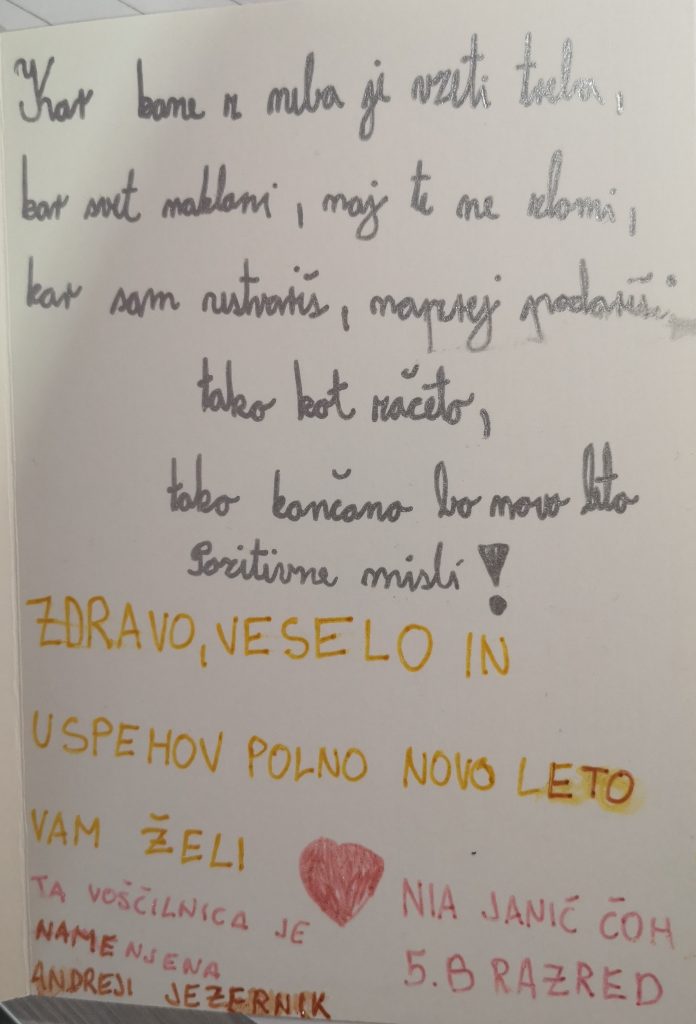 Kar kane z neba je vzeti treba,
kar svet naklani, naj te ne zlomi,
kar sam ustvariš, naprej podariš:
tako kot začeto,
tako končano bo novo leto
Pozitivne misli!
ZDRAVO, VESELO IN
USPEHOV POLNO NOVO LETO
VAM ŽELI
NIA JANIĆ ČOH
5.B RAZRED
TA VOŠČILNICA JE
NAMENJENA
ANDREJI JEZERNIK